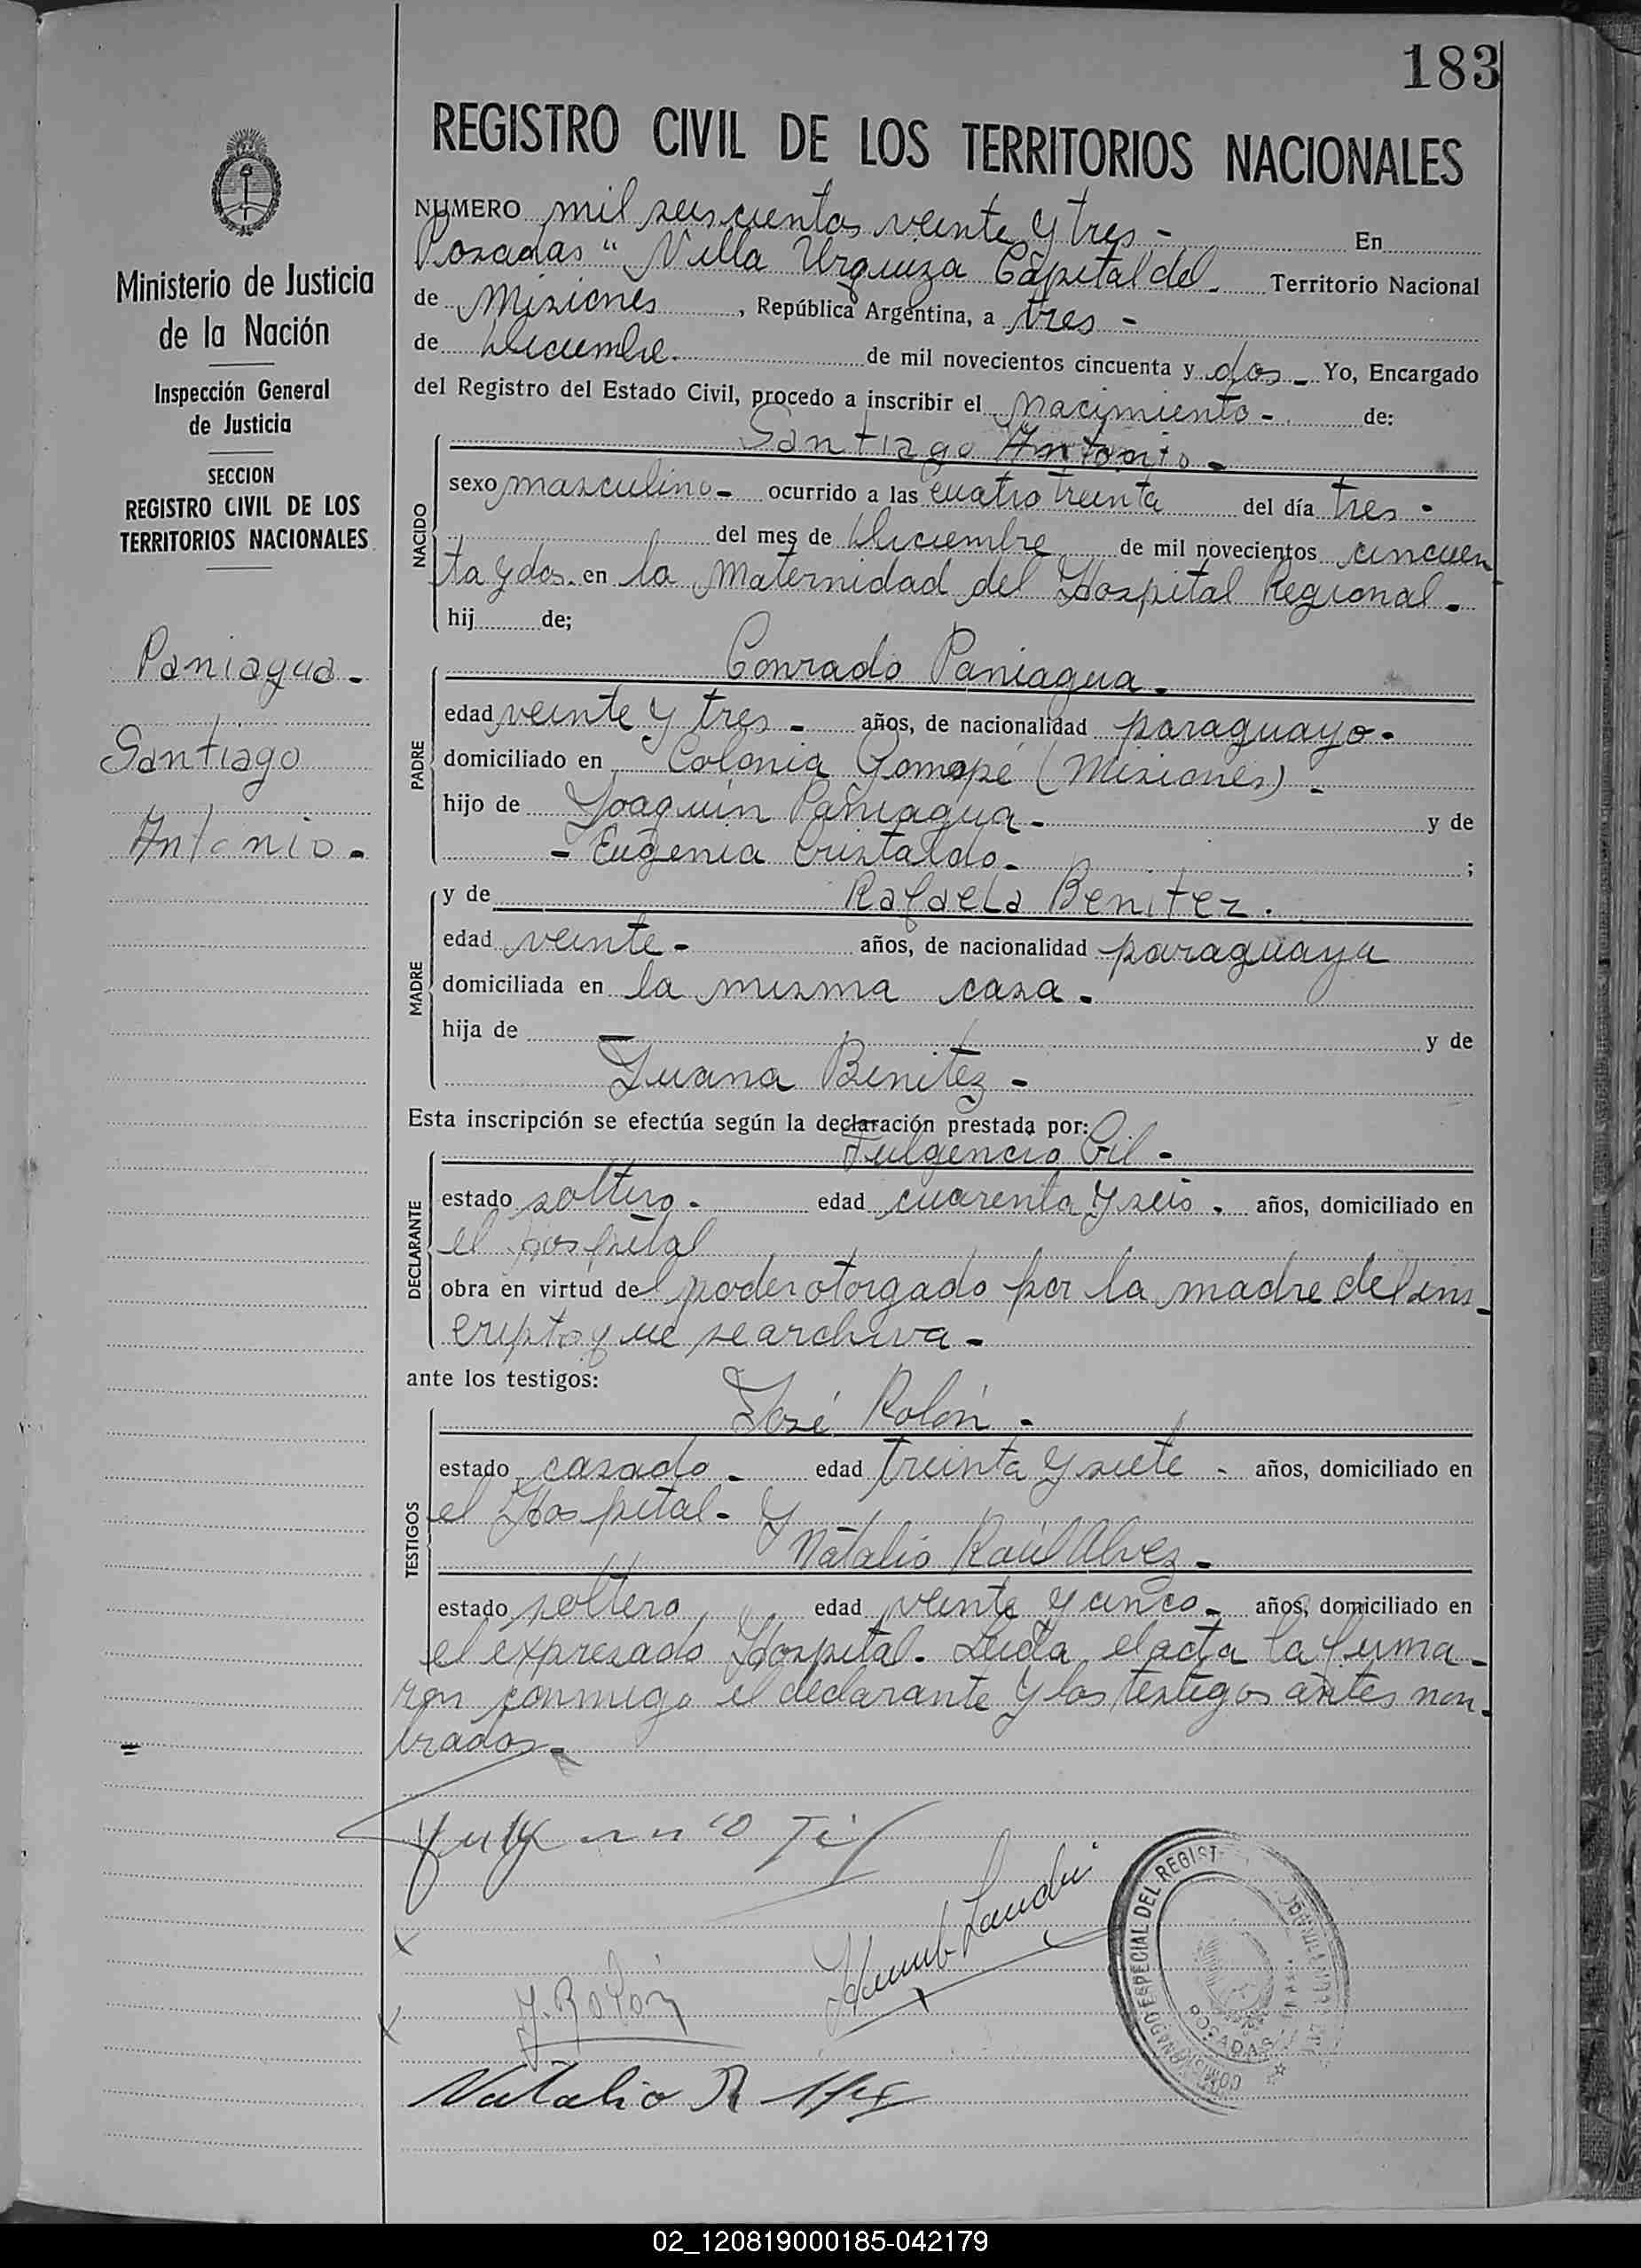 183
REGISTRO CIVIL DE LOS TERRITORIOS NACIONALES
Ministerio de Justicia
de la Nación
Inspección General
de Justicia
SECCION
REGISTRO CIVIL DE LOS
TERRITORIOS NACIONALES
Paniagua.-
Santiago
Antonio.-
NUMERO mil seiscientos veinte y tres - En
Posadas " Villa Urquiza Capital del Territorio Nacional
de Misiones, República Argentina, a tres -
de Diciembre. de mil novecientos cincuenta y dos - Yo, Encargado
del Registro del Estado Civil, procedo a inscribir el nacimiento - de:
Santiago Antonio -
NACIDO
sexo masculino - ocurrido a las cuatro treinta del día tres -
del mes de Diciembre de mil novecientos cincuen
ta y dos en la Maternidad del Hospital Regional -
hij de;
Conrado Paniagua -
PADRE
edad veinte y tres - años, de nacionalidad paraguayo -
domiciliado en Colonia (Misiones) -
hijo de Joaquín Paniagua - y de
- Eugenia Cristaldo - ;
y de Rafaela Benitez.
MADRE
edad veinte - años, de nacionalidad paraguaya
domiciliada en la misma casa -
hija de - y de
Juana Benitez -
Esta inscripción se efectúa según la declaración prestada por:
Fulgencio Gil -
DECLARANTE
estado soltero - edad cuarenta y seis - años, domiciliado en
el hospital
obra en virtud del poder otorgado por la madre del ins-
cripto que se archiva -
ante los testigos:
José Rolón -
TESTIGOS
estado casado - edad treinta y siete - años, domiciliado en
el Hospital - y
Natalio Raúl Alvez -
estado soltero edad veinte y cinco - años, domiciliado en
el expresado Hospital. Leida el acta la firma-
ron conmigo el declarante y los testigos antes nom-
brados -
J. Rolón
Natalio R
ESPECIAL DEL REGIST
POSADAS
02_120819000185-042179